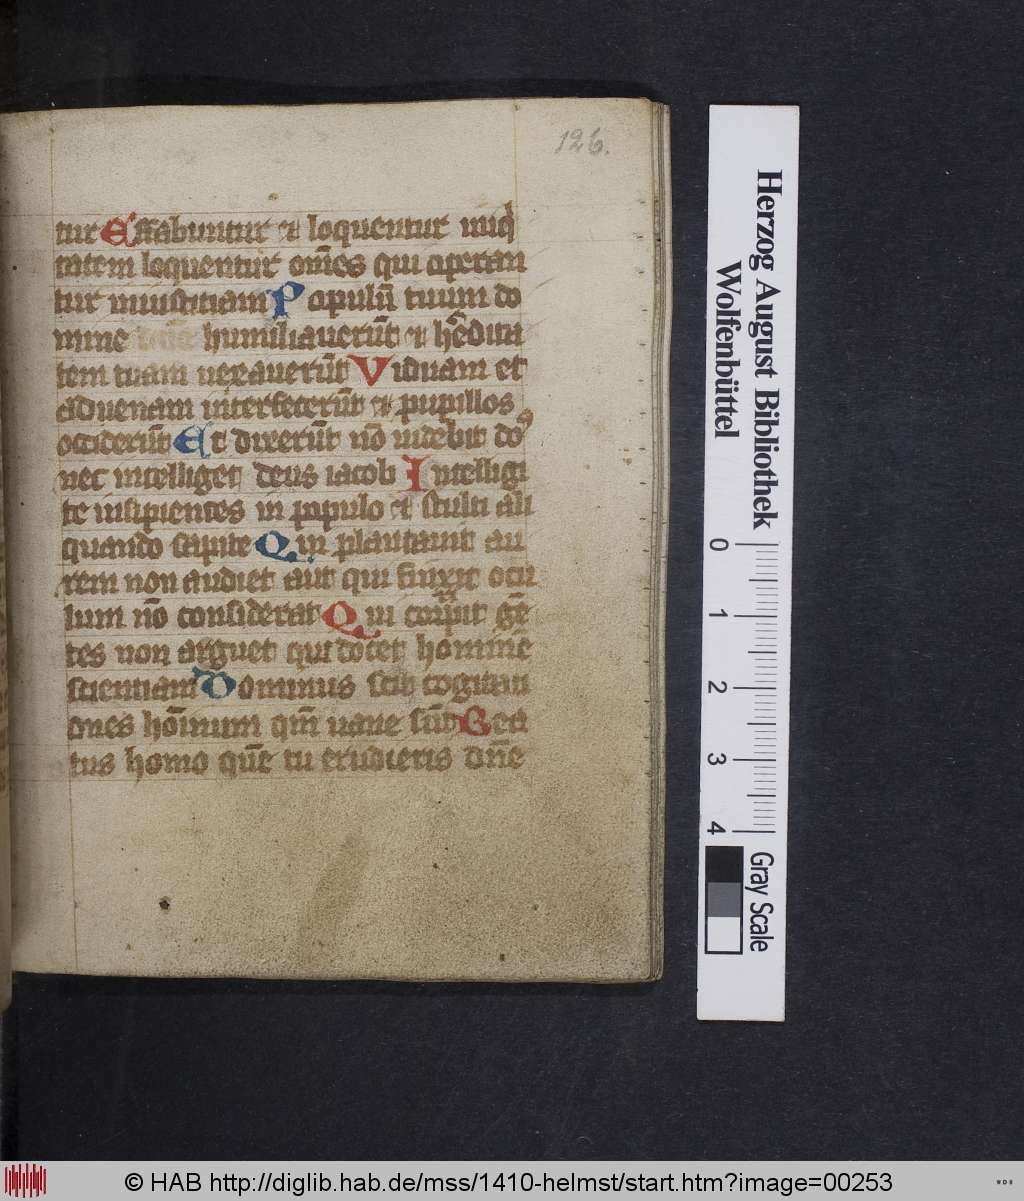 126.
tur Effabuntur et loquentur iniq̇
tatem loquentur om̄es qui operan
tur iniustitiam Populū tuum do
mine humiliauerūt et h̄edita
tem tuam uexauerūt Viduam et
aduenam interfecerūt et pupillos
occiderūt Et dixerūt nō uidebit doꝰ
nec intelliget deus iacob Intelligi
te insipientes in populo et stulti ali
quando sapite Qui plantauit au
rem non audiet aut qui finxit ocu
lum nō considerat Qui corripit gē
tes non arguet qui docet hominē
scientiam Dominus scit cogitati
ones hōinum qm̄ uane sūt Bea
tus homo quē tu erudieris dn̄e
Herzog August Bibliothek
Wolfenbüttel
0 1 2 3 4
Gray Scale
© HAB http://diglib.hab.de/mss/1410-helmst/start.htm?image=00253